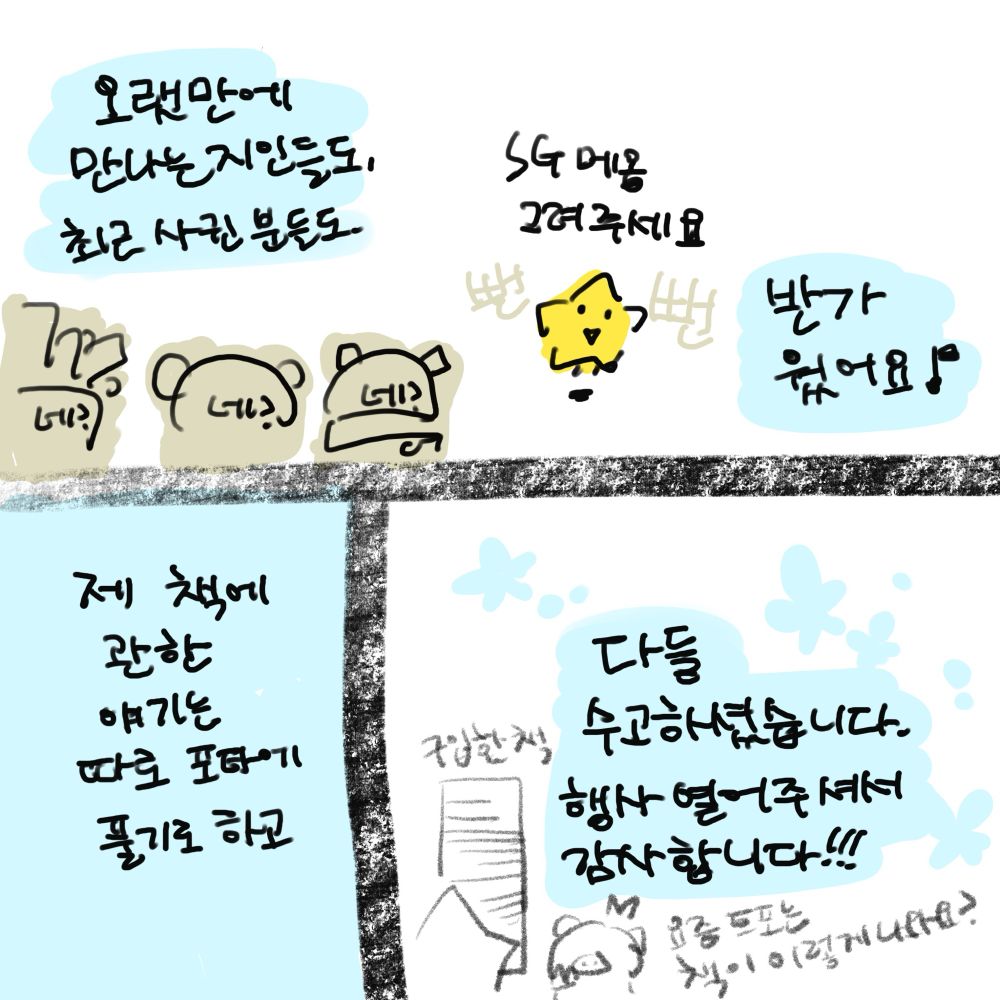 오랜만에
만나는 지인들도,
최근 사귄 분들도.
SG 메옹
그려주세요
뻔
뻔
반가
웠어요♪
네?
네?
네?
제 책에
관한
얘기는
따로 포타에
풀기로 하고
다들
수고하셨습니다.
행사 열어주셔서
감사합니다!!!
구입한 책
요즘 드포는
책이 이렇게 나와요?